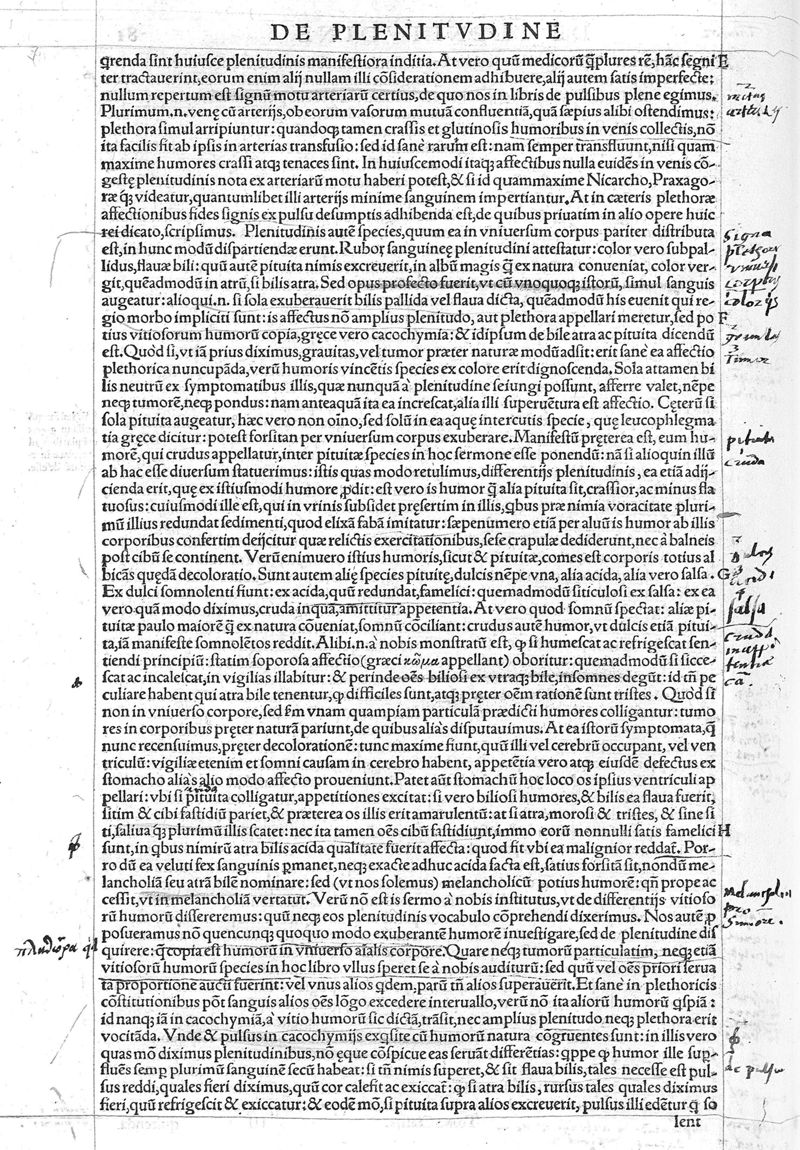 DE PLENITVDINE
q̃renda sint huiusce plenitudinis manifestiora inditia. At vero quũ medicorũ q̃plures rẽ, hãc segni E
ter tractauerint, eorum enim alij nullam illi cõsiderationem adhibuere, alij autem satis imperfecte:
nullum repertum est signũ motu arteriarũ certius, de quo nos in libris de pulsibus plene egimus.
Plurimum.n. venę cũ arterijs, ob eorum vasorum mutuã confluentiã, quã sæpius alibi ostendimus:
plethora simul arripiuntur: quandoq; tamen crassis et glutinosis humoribus in venis collectis, nõ
ita facilis fit ab ipsis in arterias transfusio: sed id sanè rarum est: nam semper transfluunt, nisi quam
maxime humores crassi atq; tenaces sint. In huiuscemodi itaq; affectibus nulla euidẽs in venis cõ-
gestę plenitudinis nota ex arteriarũ motu haberi potest, & si id quammaxime Nicarcho, Praxago-
ræ q; videatur, quantumlibet illi arterijs minime sanguinem impertiantur. At in cæteris plethoræ
affectionibus fides signis ex pulsu desumptis adhibenda est, de quibus priuatim in alio opere huic
rei dicato, scripsimus. Plenitudinis autẽ species, quum ea in vniuersum corpus pariter distributa
est, in hunc modũ dispartiendæ erunt. Rubor sanguineę plenitudini attestatur: color vero subpal-
lidus, flauæ bili: quũ autẽ pituita nimis excreuerit, in albũ magis q̃ ex natura conueniat, color ver-
git, quẽadmodũ in atrũ, si bilis atra. Sed opus profecto fuerit, vt cũ vnoquoq; istorũ, simul sanguis
augeatur: alioqui.n. si sola exuberauerit bilis pallida vel flaua dicta, quẽadmodũ his euenit qui re-
gio morbo impliciti sunt: is affectus nõ amplius plenitudo, aut plethora appellari meretur, sed po F
tius vitiosorum humorũ copia, gręce vero cacochymia: & idipsum de bile atra ac pituita dicendũ
est. Quòd si, vt iã prius diximus, grauitas, vel tumor præter naturæ modũ adsit: erit sanè ea affectio
plethorica nuncupãda, verũ humoris vincẽtis species ex colore erit dignoscenda. Sola attamen bi
lis neutrũ ex symptomatibus illis, quæ nunquã à plenitudine seiungi possunt, afferre valet, nẽpe
neq; tumorẽ, neq; pondus: nam anteaquã ita ea increscat, alia illi superuẽtura est affectio. Cęterũ si
sola pituita augeatur, hæc vero non oĩno, sed solũ in ea aquę intercutis specie, quę leucophlegma
tia gręce dicitur: potest forsitan per vniuersum corpus exuberare. Manifestũ pręterea est, eum hu-
morẽ, qui crudus appellatur, inter pituitæ species in hoc sermone esse ponendũ: nã si alioquin illũ
ab hac esse diuersum statuerimus: istis quas modo retulimus, differentijs plenitudinis, ea etiã adij-
cienda erit, quę ex istiusmodi humore p̱dit: est vero is humor q̃ alia pituita sit, crassior, ac minus fla
tuosus: cuiusmodi ille est, qui in vrinis subsidet pręsertim in illis, q̃bus præ nimia voracitate pluri-
mũ illius redundat sedimenti, quod elixã fabã imitatur: sæpenumero etiã per aluũ is humor ab illis
corporibus confertim deijcitur quæ relictis exercitationibus, sese crapulæ dediderunt, nec à balneis
post cibũ se continent. Verũ enimuero istius humoris, sicut & pituitæ, comes est corporis totius al
bicãs quędã decoloratio. Sunt autem alię species pituitę, dulcis nẽpe vna, alia acida, alia vero salsa. G
Ex dulci somnolenti fiunt: ex acida, quũ redundat, famelici: quemadmodũ siticulosi ex salsa: ex ea
vero quã modo diximus, cruda inquã, amittitur appetentia. At vero quod somnũ spectat: aliæ pi-
tuitæ paulo maiorẽ q̃ ex natura cõueniat, somnũ cõciliant: crudus autẽ humor, vt dulcis etiã pitui-
ta, iã manifeste somnolẽtos reddit. Alibi.n. à nobis monstratũ est, ꝙ si humescat ac refrigescat sen-
tiendi principiũ: statim soporosa affectio (græci κῶμα appellant) oboritur: quemadmodũ si sicce-
scat ac incalescat, in vigilias illabitur: & perinde oẽs biliosi ex vtraq; bile, insomnes degũt: id tñ pe
culiare habent qui atra bile tenentur, ꝙ difficiles sunt, atq; pręter oẽm rationẽ sunt tristes. Quòd si
non in vniuerso corpore, sed s̃m vnam quampiam particulã prædicti humores colligantur: tumo
res in corporibus pręter naturã pariunt, de quibus aliàs disputauimus. At ea istorũ symptomata, q̃
nunc recensuimus, pręter decolorationẽ: tunc maxime fiunt, quũ illi vel cerebrũ occupant, vel ven
triculũ: vigiliæ etenim et somni causam in cerebro habent, appetẽtia vero atq; eiusdẽ defectus ex
stomacho aliàs alio modo affecto proueniunt. Patet aũt stomachũ hoc loco os ipsius ventriculi ap
pellari: vbi si pituita colligatur, appetitiones excitat: si vero biliosi humores, & bilis ea flaua fuerit,
sitim & cibi fastidiũ pariet, & præterea os illis erit amarulentũ: at si atra, morosi & tristes, & sine si
ti, saliua q; plurimũ illis scatet: nec ita tamen oẽs cibũ fastidiunt, immo eorũ nonnulli satis famelici H
sunt, in q̃bus nimirũ atra bilis acida qualitate fuerit affecta: quod fit vbi ea malignior reddat̃. Por-
ro dũ ea veluti fex sanguinis ꝑmanet, neq; exacte adhuc acida facta est, satius forsitã sit, nondũ me-
lancholiã seu atrã bilẽ nominare: sed (vt nos solemus) melancholicũ potius humorẽ: qñ prope ac
cessit, vt in melancholiã vertatur. Verũ nõ est is sermo à nobis institutus, vt de differentijs vitioso
rũ humorũ dissereremus: quũ neq; eos plenitudinis vocabulo cõprehendi dixerimus. Nos autẽ ꝓ
posueramus nõ quencunq; quoquo modo exuberantẽ humorẽ inuestigare, sed de plenitudine dis
quirere: q̃ copia est humorũ in vniuerso aĩalis corpore. Quare neq; tumorũ particulatim, neq; etiã
vitiosorũ humorũ species in hoc libro vllus speret se à nobis auditurũ: sed quũ vel oẽs priori serua
ta proportione aucti fuerint: vel vnus alios q̃dem, parũ tñ alios superauerit. Et sanè in plethoricis
cõstitutionibus põt sanguis alios oẽs lõgo excedere interuallo, verũ nõ ita aliorũ humorũ q̃spiã:
id nanq; iã in cacochymiã, à vitio humorũ sic dictã, trãsit, nec amplius plenitudo neq; plethora erit
vocitãda. Vnde & pulsus in cacochymijs exq̃site cũ humorũ natura cõgruentes sunt: in illis vero
quas mõ diximus plenitudinibus, nõ ęque cõspicue eas seruãt differẽtias: q̃ppe ꝙ humor ille suꝑ-
fluẽs semꝑ plurimũ sanguinẽ secũ habeat: si tñ nimis superet, & sit flaua bilis, tales necesse est pul-
sus reddi, quales fieri diximus, quũ cor calefit ac exiccat̃: ꝙ si atra bilis, rursus tales quales diximus
fieri, quũ refrigescit & exiccatur: & eodẽ mõ, si pituita supra alios excreuerit, pulsus illi edẽtur q̃ so
lent
signa
plethoræ
grauitas
tumor
pituita
cruda
salsa
cruda
πληθώρα qd
de pulsu